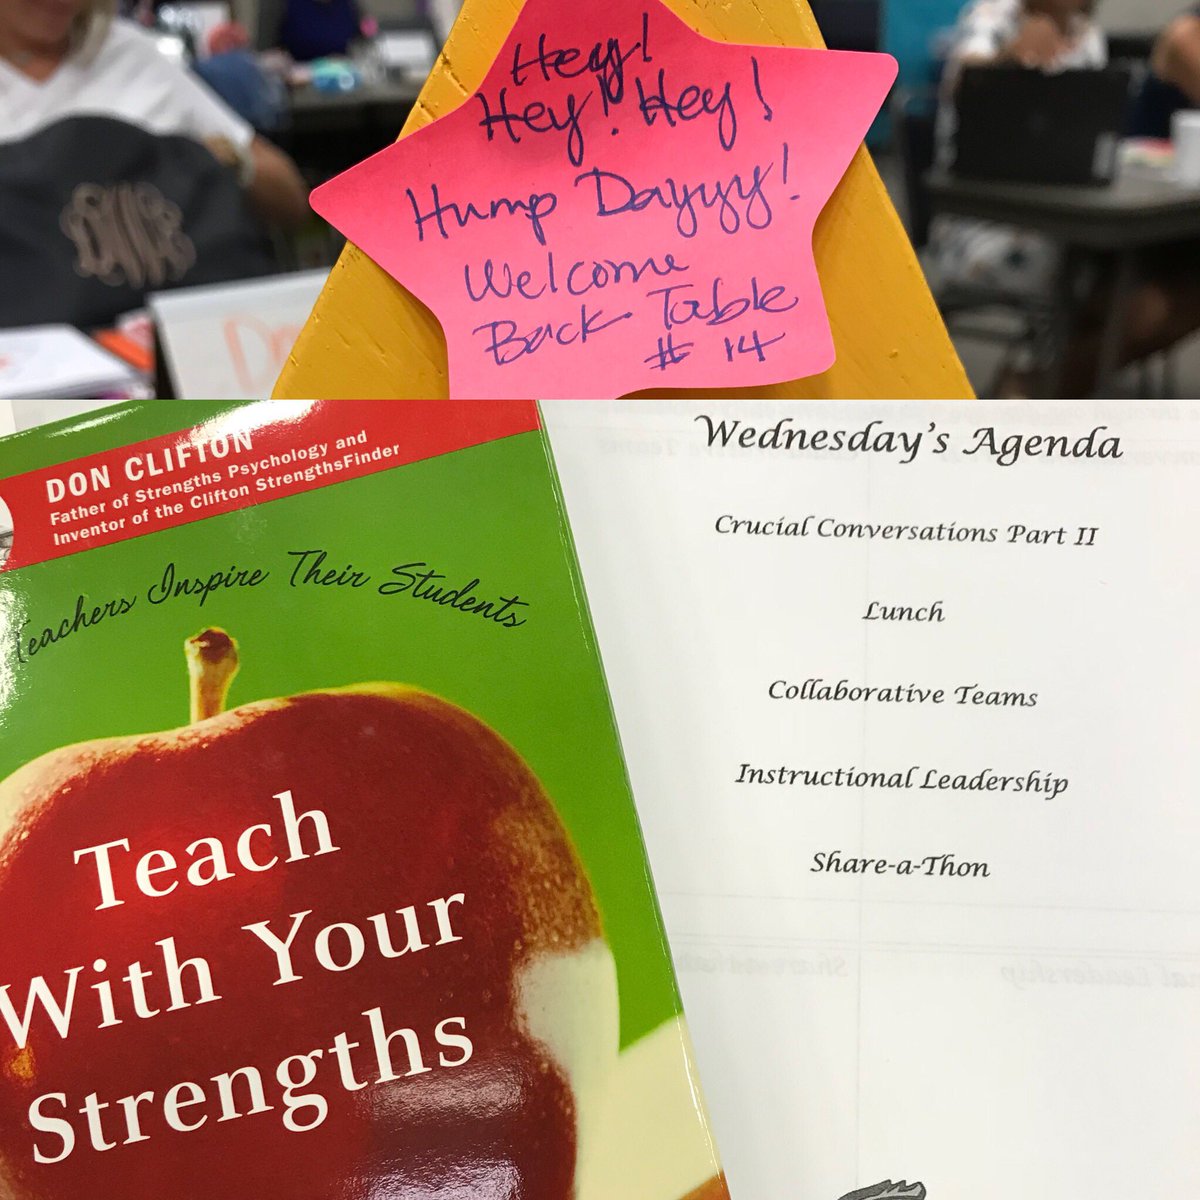 Hey!
Hey! Hey!
Hump Dayyy!
Welcome
Back Table
# 14
DON CLIFTON
Father of Strengths Psychology and
Inventor of the Clifton StrengthsFinder
Teachers Inspire Their Students
Teach
With Your
Strengths
Wednesday's Agenda
Crucial Conversations Part II
Lunch
Collaborative Teams
Instructional Leadership
Share-a-Thon